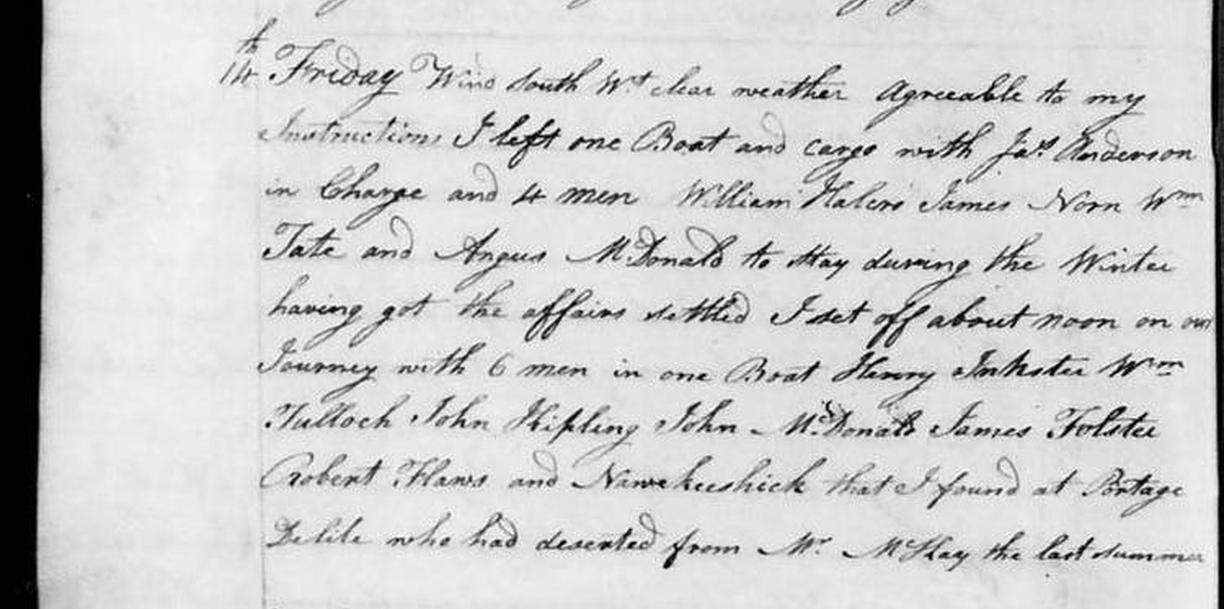 14th Friday Wind South Wt clear weather Agreeable to my
Instructions I left one Boat and cargo with Jas Anderson
in Charge and 4 men William Halcro James Norn Wm
Tate and Angus McDonald to stay during the Winter
having got the affairs settled I set off about noon on our
Journey with 6 men in one Boat Henry Inkster Wm
Tulloch John Kipling John McDonald James Folster
Robert Flaws and Nawekeeshick that I found at Portage
Delile who had deserted from Mr McKay the last summer